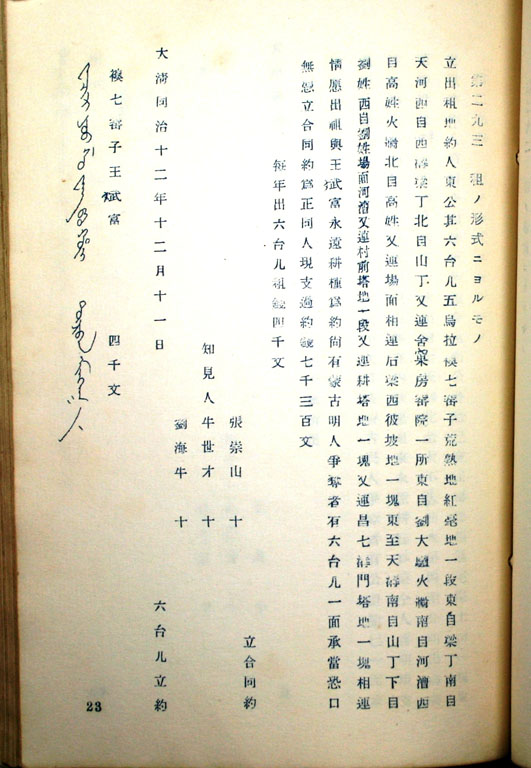 第二九三 租ノ形式ニヨルモノ
立出租地約人東公其六台儿五烏拉襖七審子荒熟地紅毫地一段東自梁丁南自
天河西自西海梁丁北自山丁又連舍菓房審院一所東自劉大驢火濔南自河漕西
目高姓火濔北目高姓又連場面相連后梁西彼坡地一塊東至天海南自山丁下目
劉姓西自劉姓場面河漕又連村前塔地一段又連耕塔地一塊又連昌七海門塔地一塊相連
情愿出祖與王斌富永遠耕種爲約尙有蒙古明人爭奪者有六台儿一面承當恐口
無慿立合同約爲正同人現支過約錢七千三百文
每年出六台儿租錢四千文
立合同約
張崇山 十
知見人牛世才 十
劉海牛 十
大淸同治十二年十二月十一日 六台儿立約
襖七審子王斌富 四千文
23